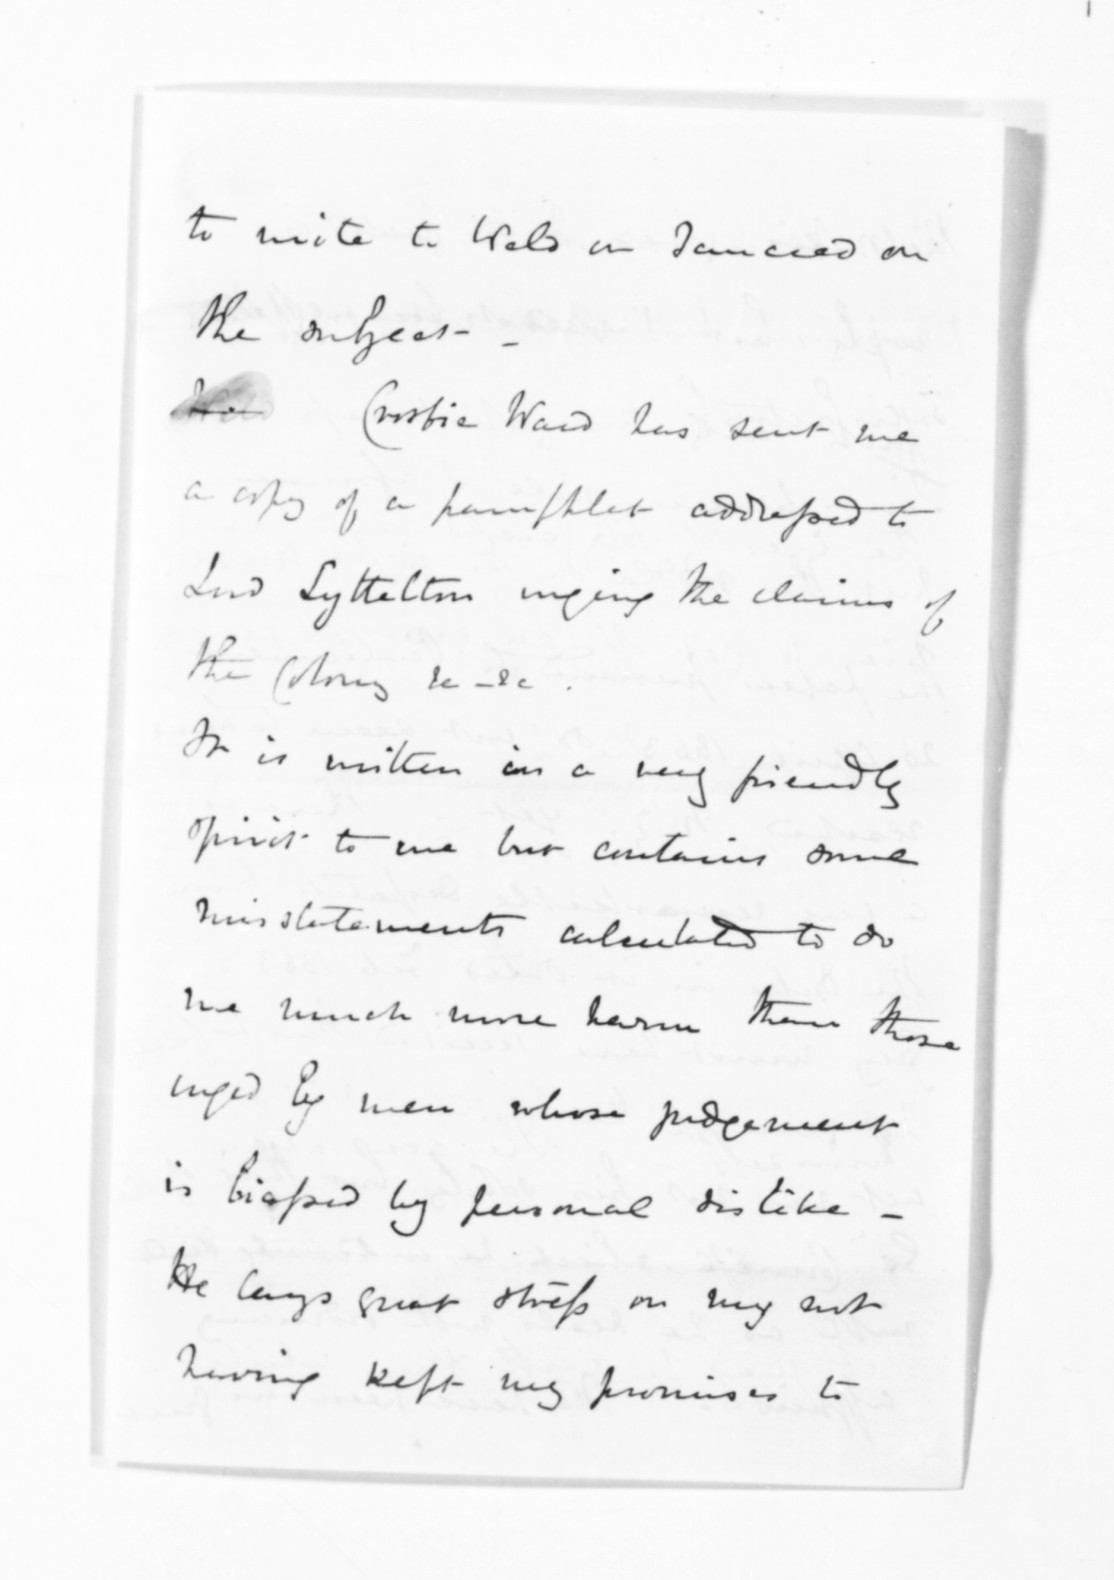 to write to Weld or Tancred on
the subject -
Crosbie Ward has sent me
a copy of a pamphlet addressed to
Lord Lyttelton urging the claims of
the Colony &c - &c.
It is written in a very friendly
spirit to me but contains some
misstatements calculated to do
me much more harm than those
urged by men whose judgement
is biassed by personal dislike -
He lays great stress on my not
having kept my promises to